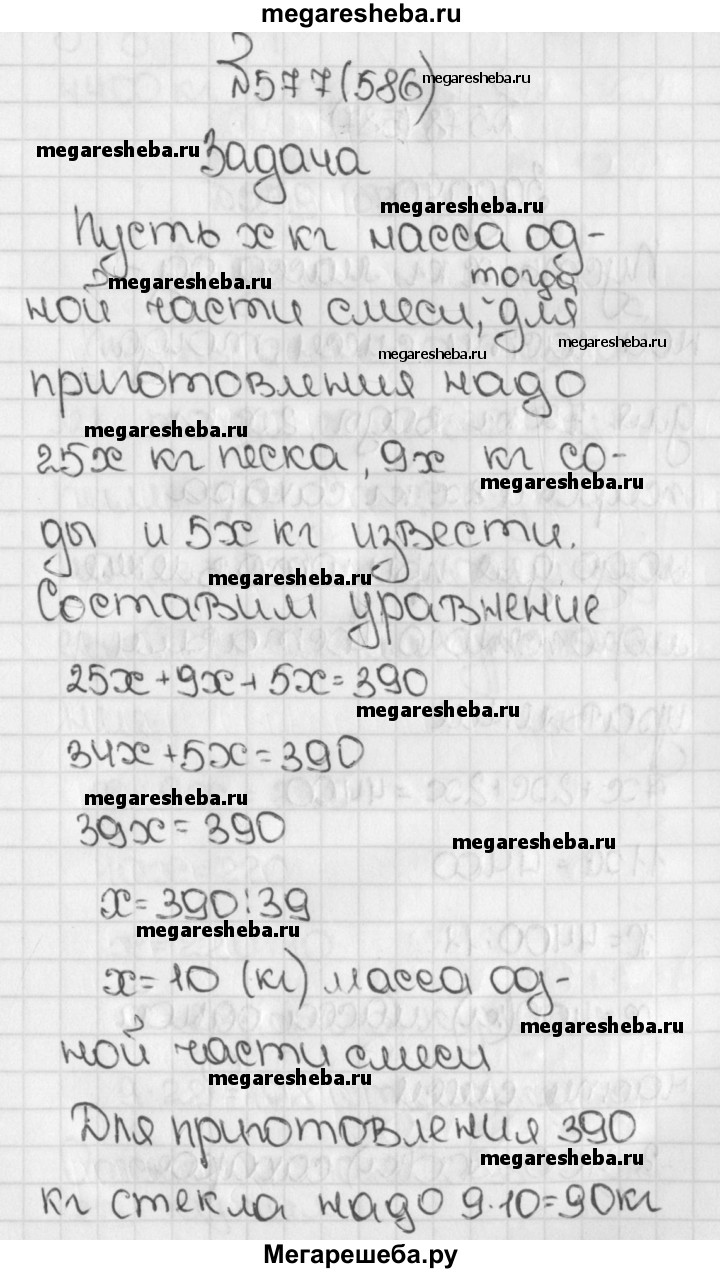 megaresheba.ru
№577(586) megaresheba.ru
megaresheba.ru Задача
megaresheba.ru
Пусть x кг масса од-
megaresheba.ru тогда
ной части смеси, для
megaresheba.ru megaresheba.ru
приготовления надо
megaresheba.ru
25x кг песка, 9x кг со-
megaresheba.ru
ды и 5x кг извести.
megaresheba.ru
Составим уравнение
25x+9x+5x=390
megaresheba.ru
34x+5x=390
megaresheba.ru
39x=390
megaresheba.ru
x=390:39
megaresheba.ru
x=10 (кг) масса од-
megaresheba.ru
ной части смеси
megaresheba.ru
Для приготовления 390
megaresheba.ru
кг стекла надо 9·10=90кг
Мегарешеба.ру